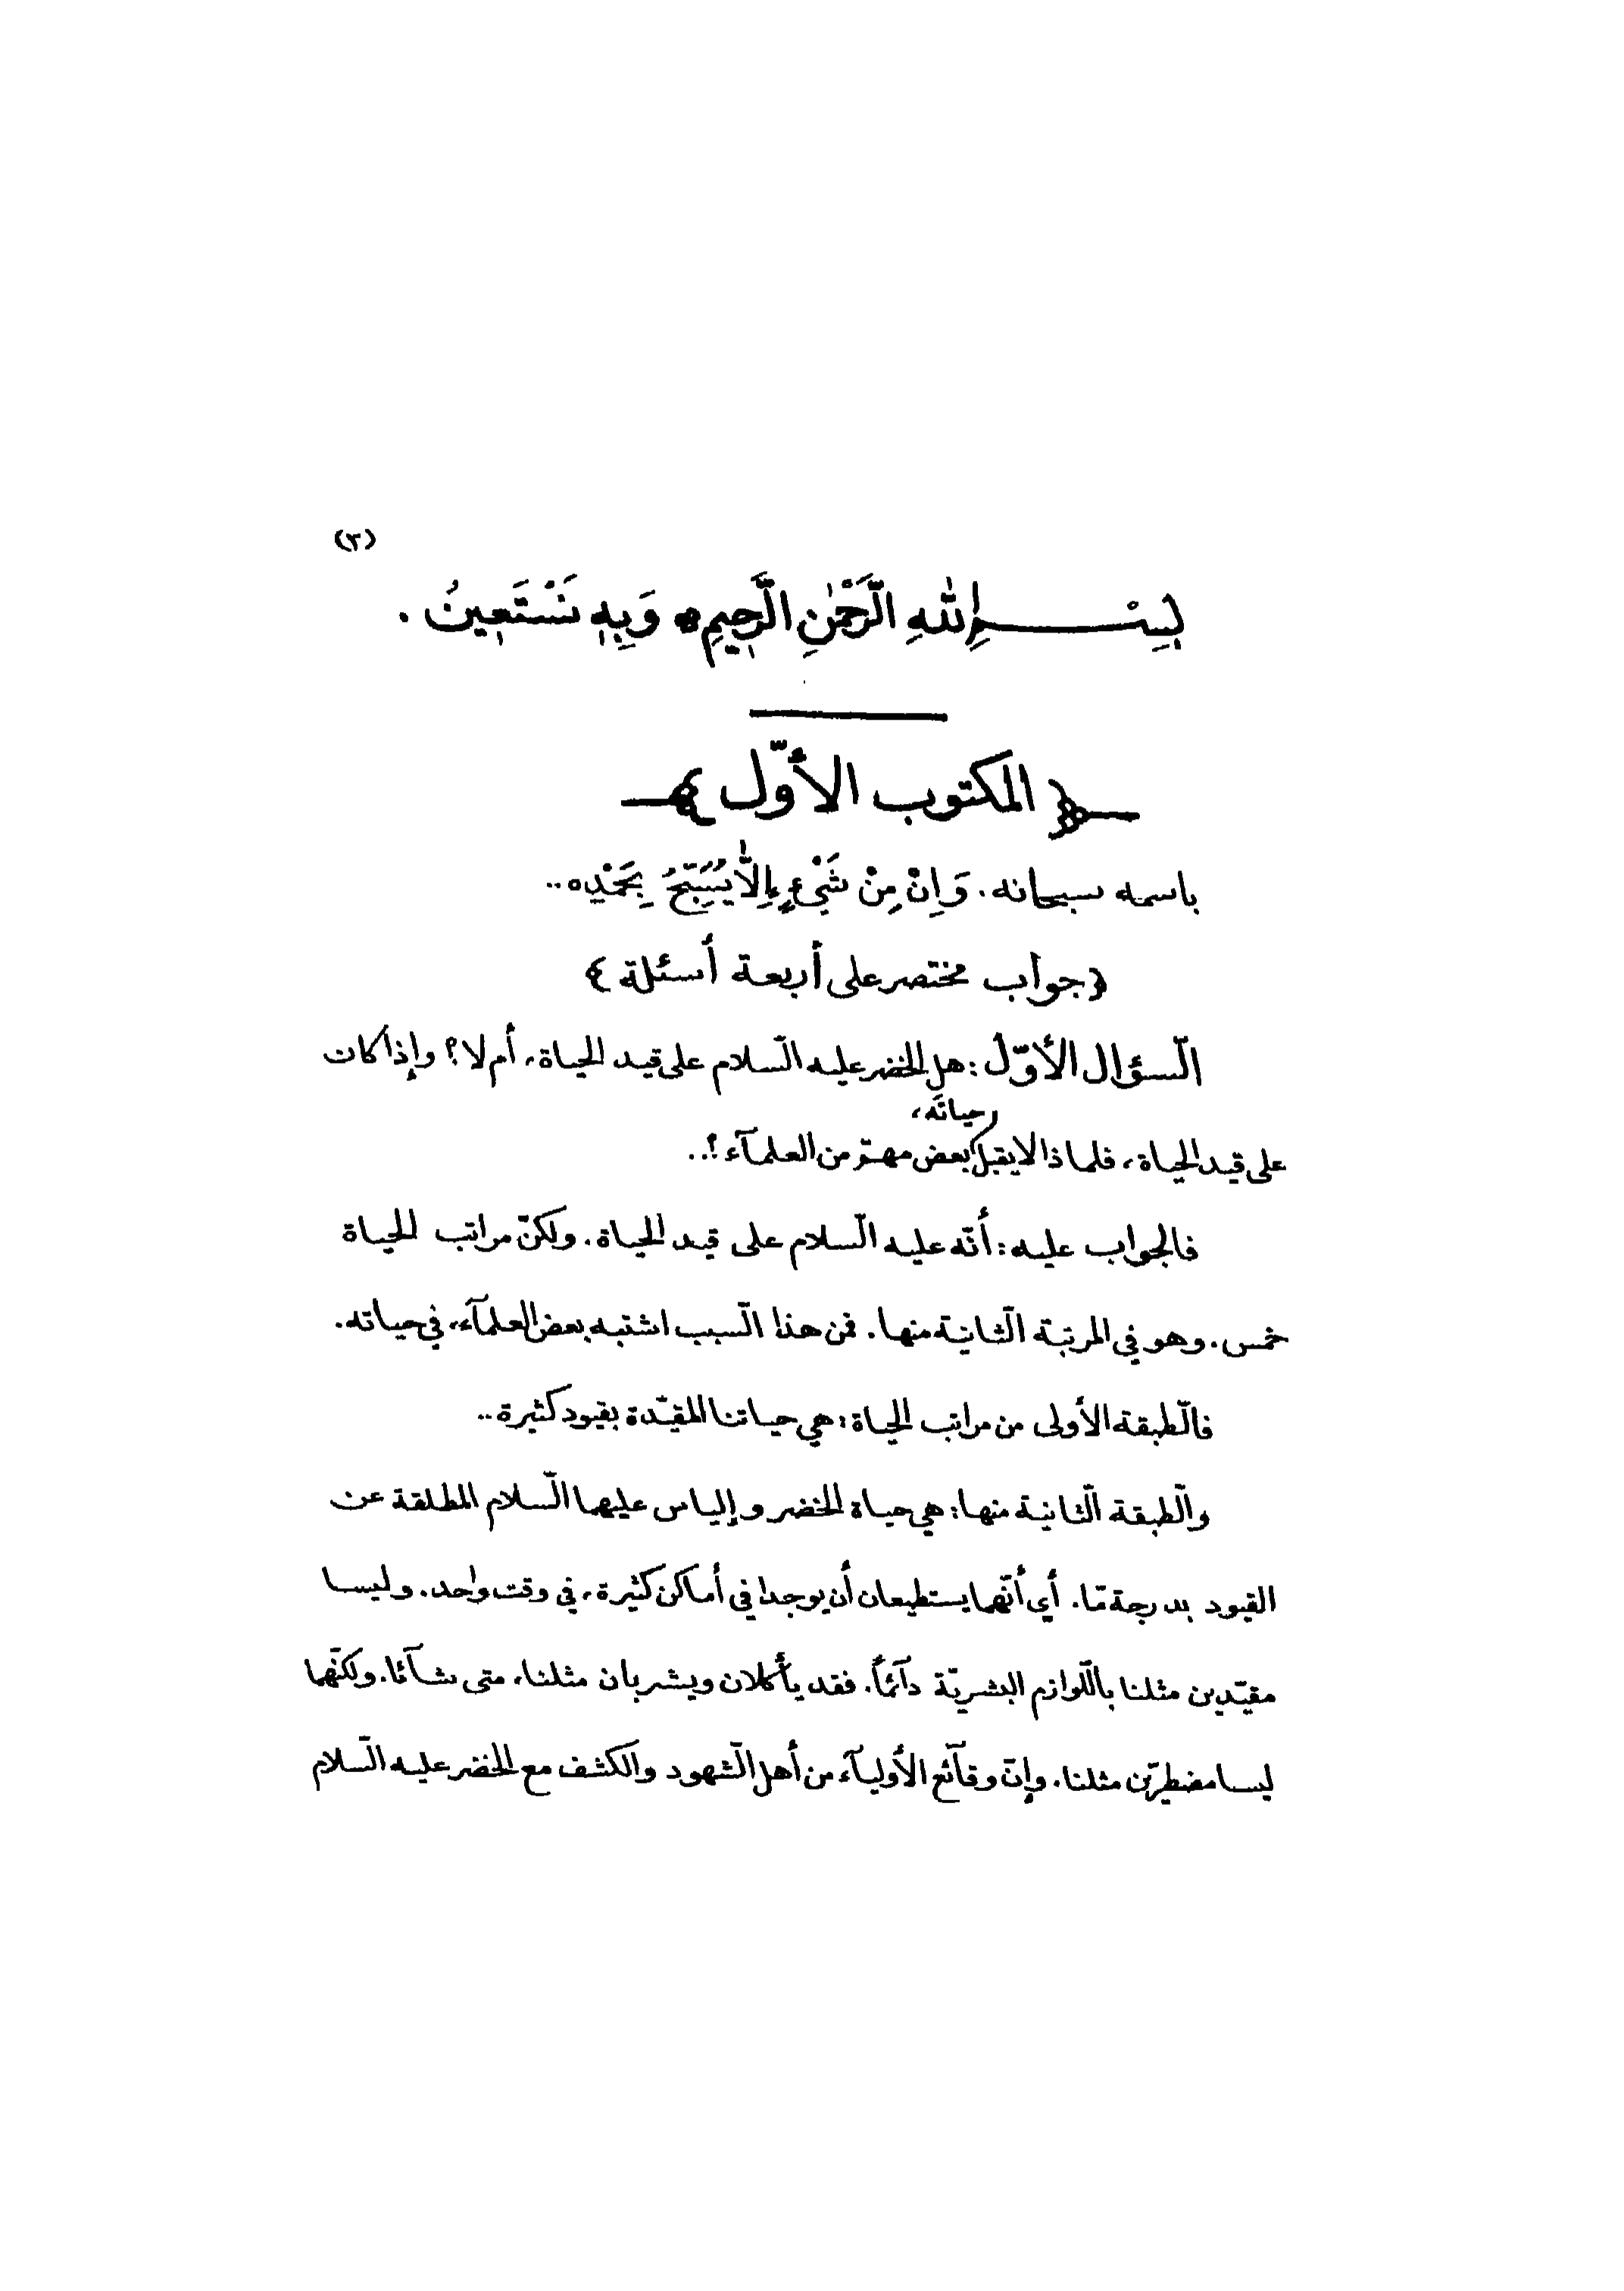 (٣)
بِسْمِ اللهِ الرَّحْمٰنِ الرَّحِيمِ ه وَبِهِ نَسْتَعِينُ .
﴿ المكتوب الأوّل ﴾
باسمه سبحانه. وَإِنْ مِنْ شَيْءٍ إِلَّا يُسَبِّحُ بِحَمْدِه..
﴿ جواب مختصر على أربعة أسئلة ﴾
السّؤال الأوّل : هل الخضر عليه السّلام على قيد الحياة، أم لا؟ وإذا كان
حياتَه،
على قيد الحياة، فلماذا لا يقبل بعض مهمّ من العلمآء ؟..
فالجواب عليه : أنّه عليه السّلام على قيد الحياة. ولكنّ مراتب الحياة
خمس. وهو في المرتبة الثّانية منها. فمن هذا السّبب اشتبه بعض العلمآء، في حياته.
فالطّبقة الأولى من مراتب الحياة : هي حياتنا المقيّدة بقيود كثيرة..
والطّبقة الثّانية منها : هي حياة الخضر وإلياس عليهما السّلام المطلقة عن
القيود بدرجة مّا. أي أنّهما يستطيعان أن يوجدا في أماكن كثيرة، في وقت واحد. وليسا
مقيّدين مثلنا باللّوازم البشريّة دآئماً. فقد يأكلان ويشربان مثلنا، متى شآئا. ولكنّهما
ليسا مضطرّين مثلنا. وإنّ وقآئع الأوليآء من أهل الشّهود والكشف مع الخضر عليه السّلام